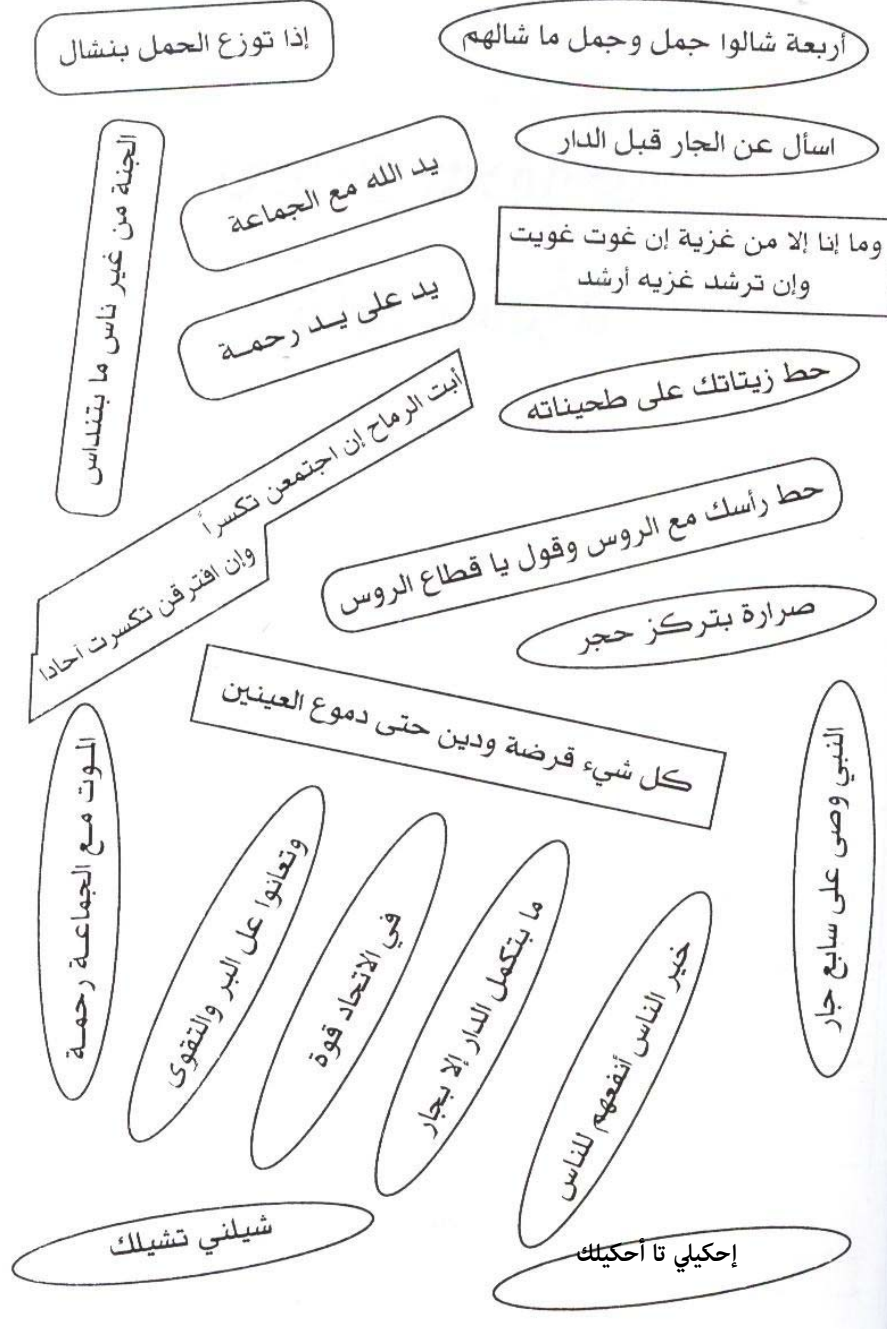 أربعة شالوا جمل وجمل ما شالهم
إذا توزع الحمل بنشال
اسأل عن الجار قبل الدار
يد الله مع الجماعة
الجنة من غير ناس ما بتنداس
وما إنا إلا من غزية إن غوت غويت
وإن ترشد غزيه أرشد
يد على يـد رحمـة
حط زيتاتك على طحيناته
أبت الرماح إن اجتمعن تكسراً
وإن افترقن تكسرت آحادا
حط رأسك مع الروس وقول يا قطاع الروس
صرارة بتركز حجر
كل شيء قرضة ودين حتى دموع العينين
النبي وصى على سابع جار
المـوت مـع الجماعـة رحمـة
وتعانوا عل البر والتقوى
في الاتحاد قوة
ما بتكمل الدار إلا بجار
خير الناس أنفعهم للناس
شيلني تشيلك
إحكيلي تا أحكيلك